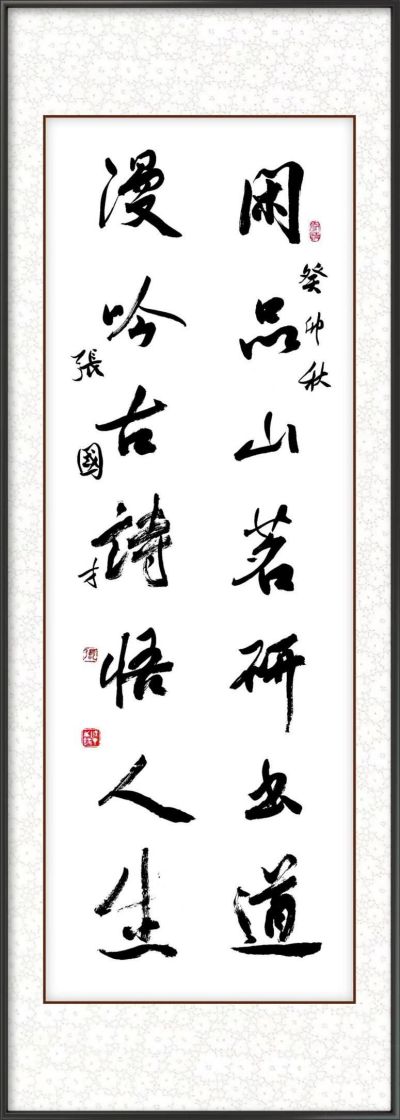 闲品山茗研书道
漫吟古詩悟人生
癸卯秋
張國才